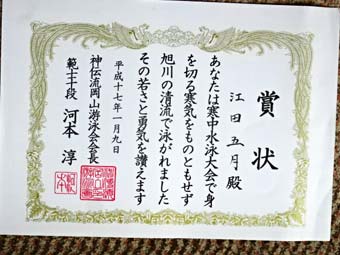 賞状
江田五月殿
あなたは寒中水泳大会で身
を切る寒気をものともせず
旭川の清流で泳がれました
その若さと勇気を讃えます
平成十七年一月九日
神伝流岡山游泳会会長
範士十段 河本淳